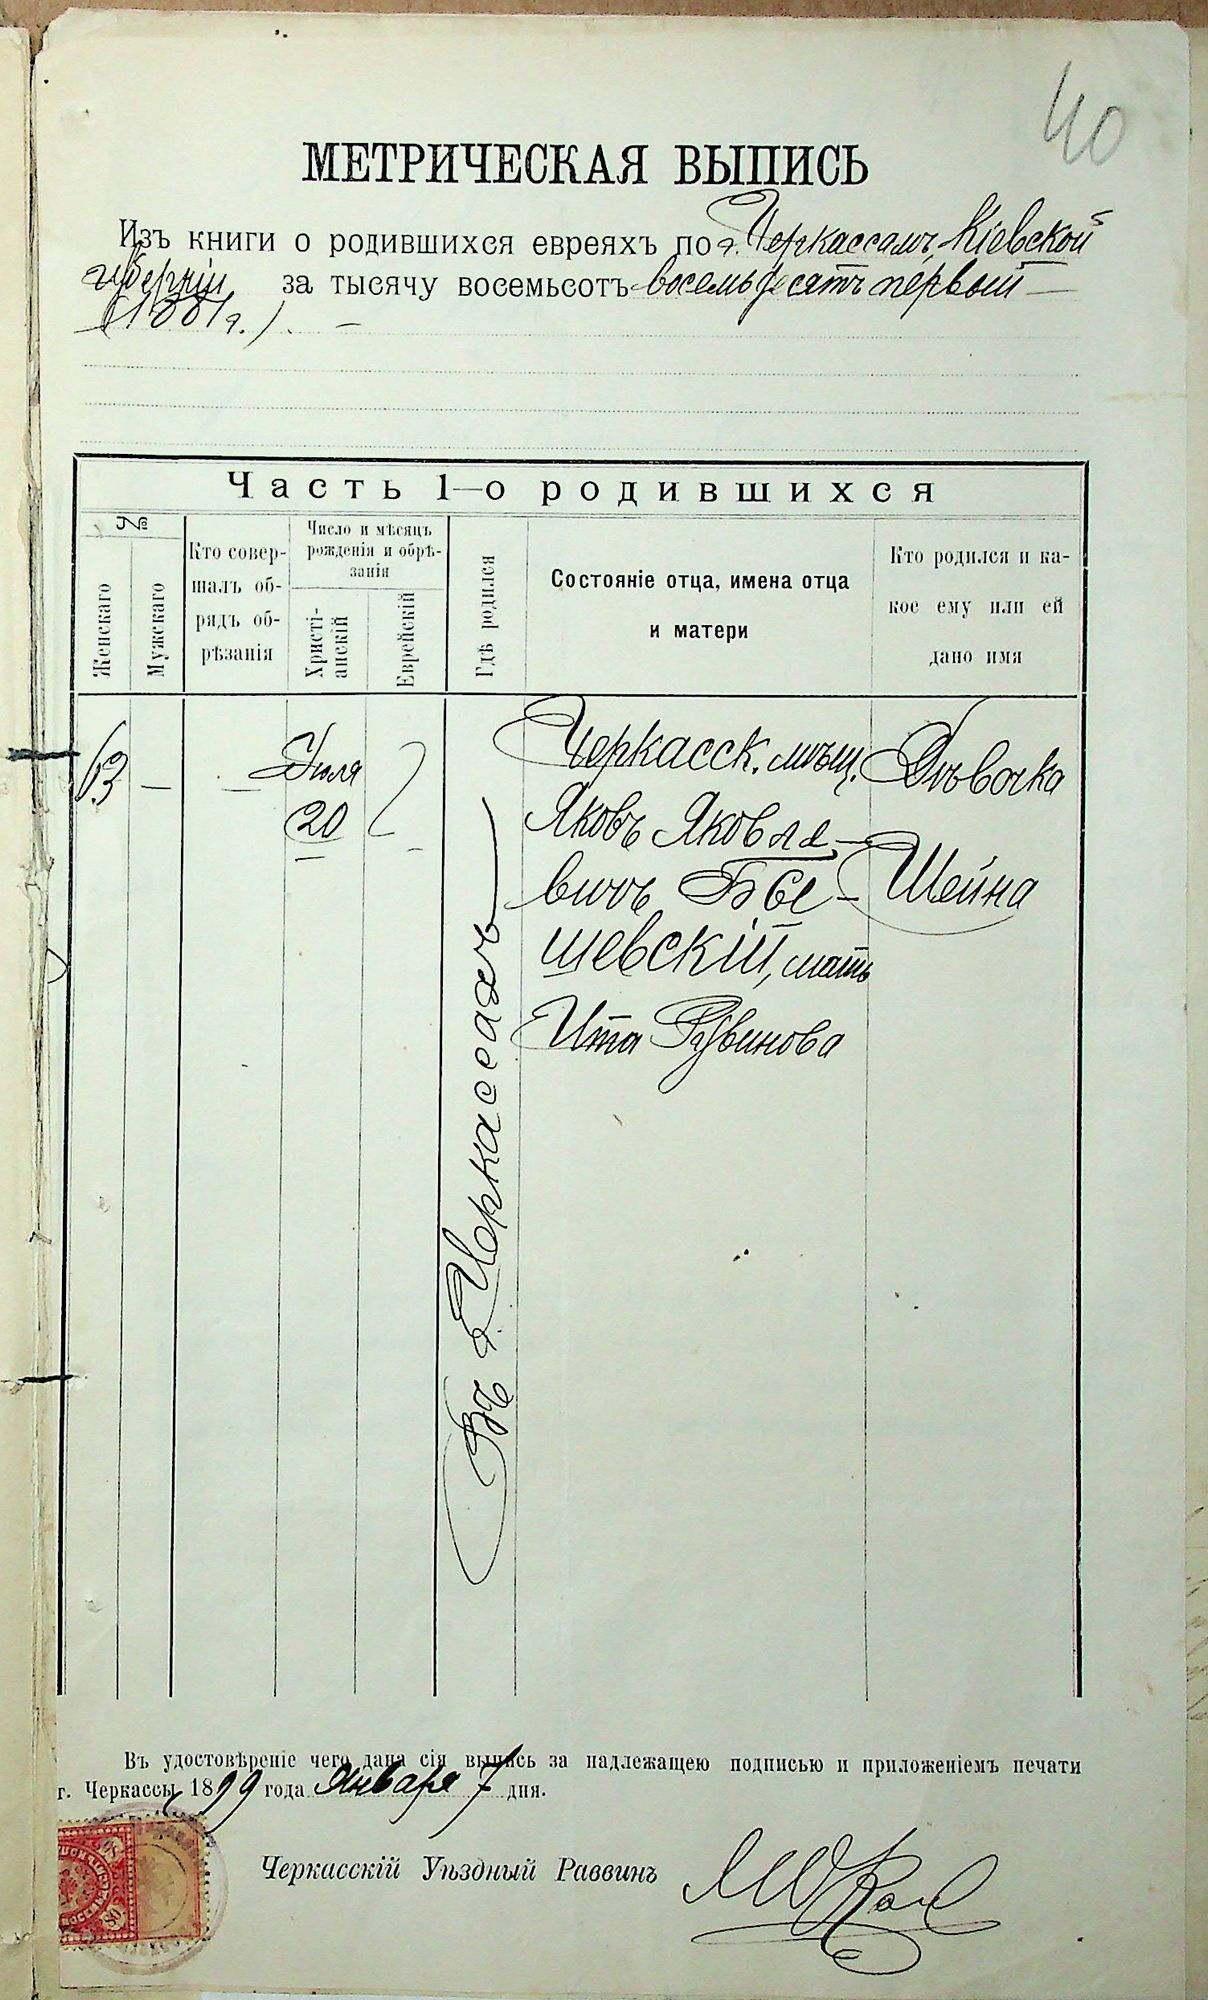 40
МЕТРИЧЕСКАЯ ВЫПИСЬ
Изъ книги о родившихся евреяхъ по г. Черкассамъ, Кіевской
губерніи за тысячу восемьсотъ восемьдесятъ первый —
(1881 г.) . —
Часть 1—о родившихся
№
Женскаго
Мужскаго
Кто совер-
шалъ об-
рядъ об-
рѣзанія
Число и мѣсяцъ
рожденія и обрѣ-
занія
Христі-
анскій
Еврейскій
Гдѣ родился
Состояніе отца, имена отца
и матери
Кто родился и ка-
кое ему или ей
дано имя
63
—
—
Іюля
20
Въ г. Черкассахъ
Черкасск. мѣщ.
Яковъ Яковле-
вичъ
шевскій, мать
Ита Рувинова
Дѣвочка
Шейна
Въ удостовѣреніе чего дана сія выпись за надлежащею подписью и приложеніемъ печати
г. Черкассы, 1899 года Января 7 дня.
Черкасскій Уѣздный Раввинъ